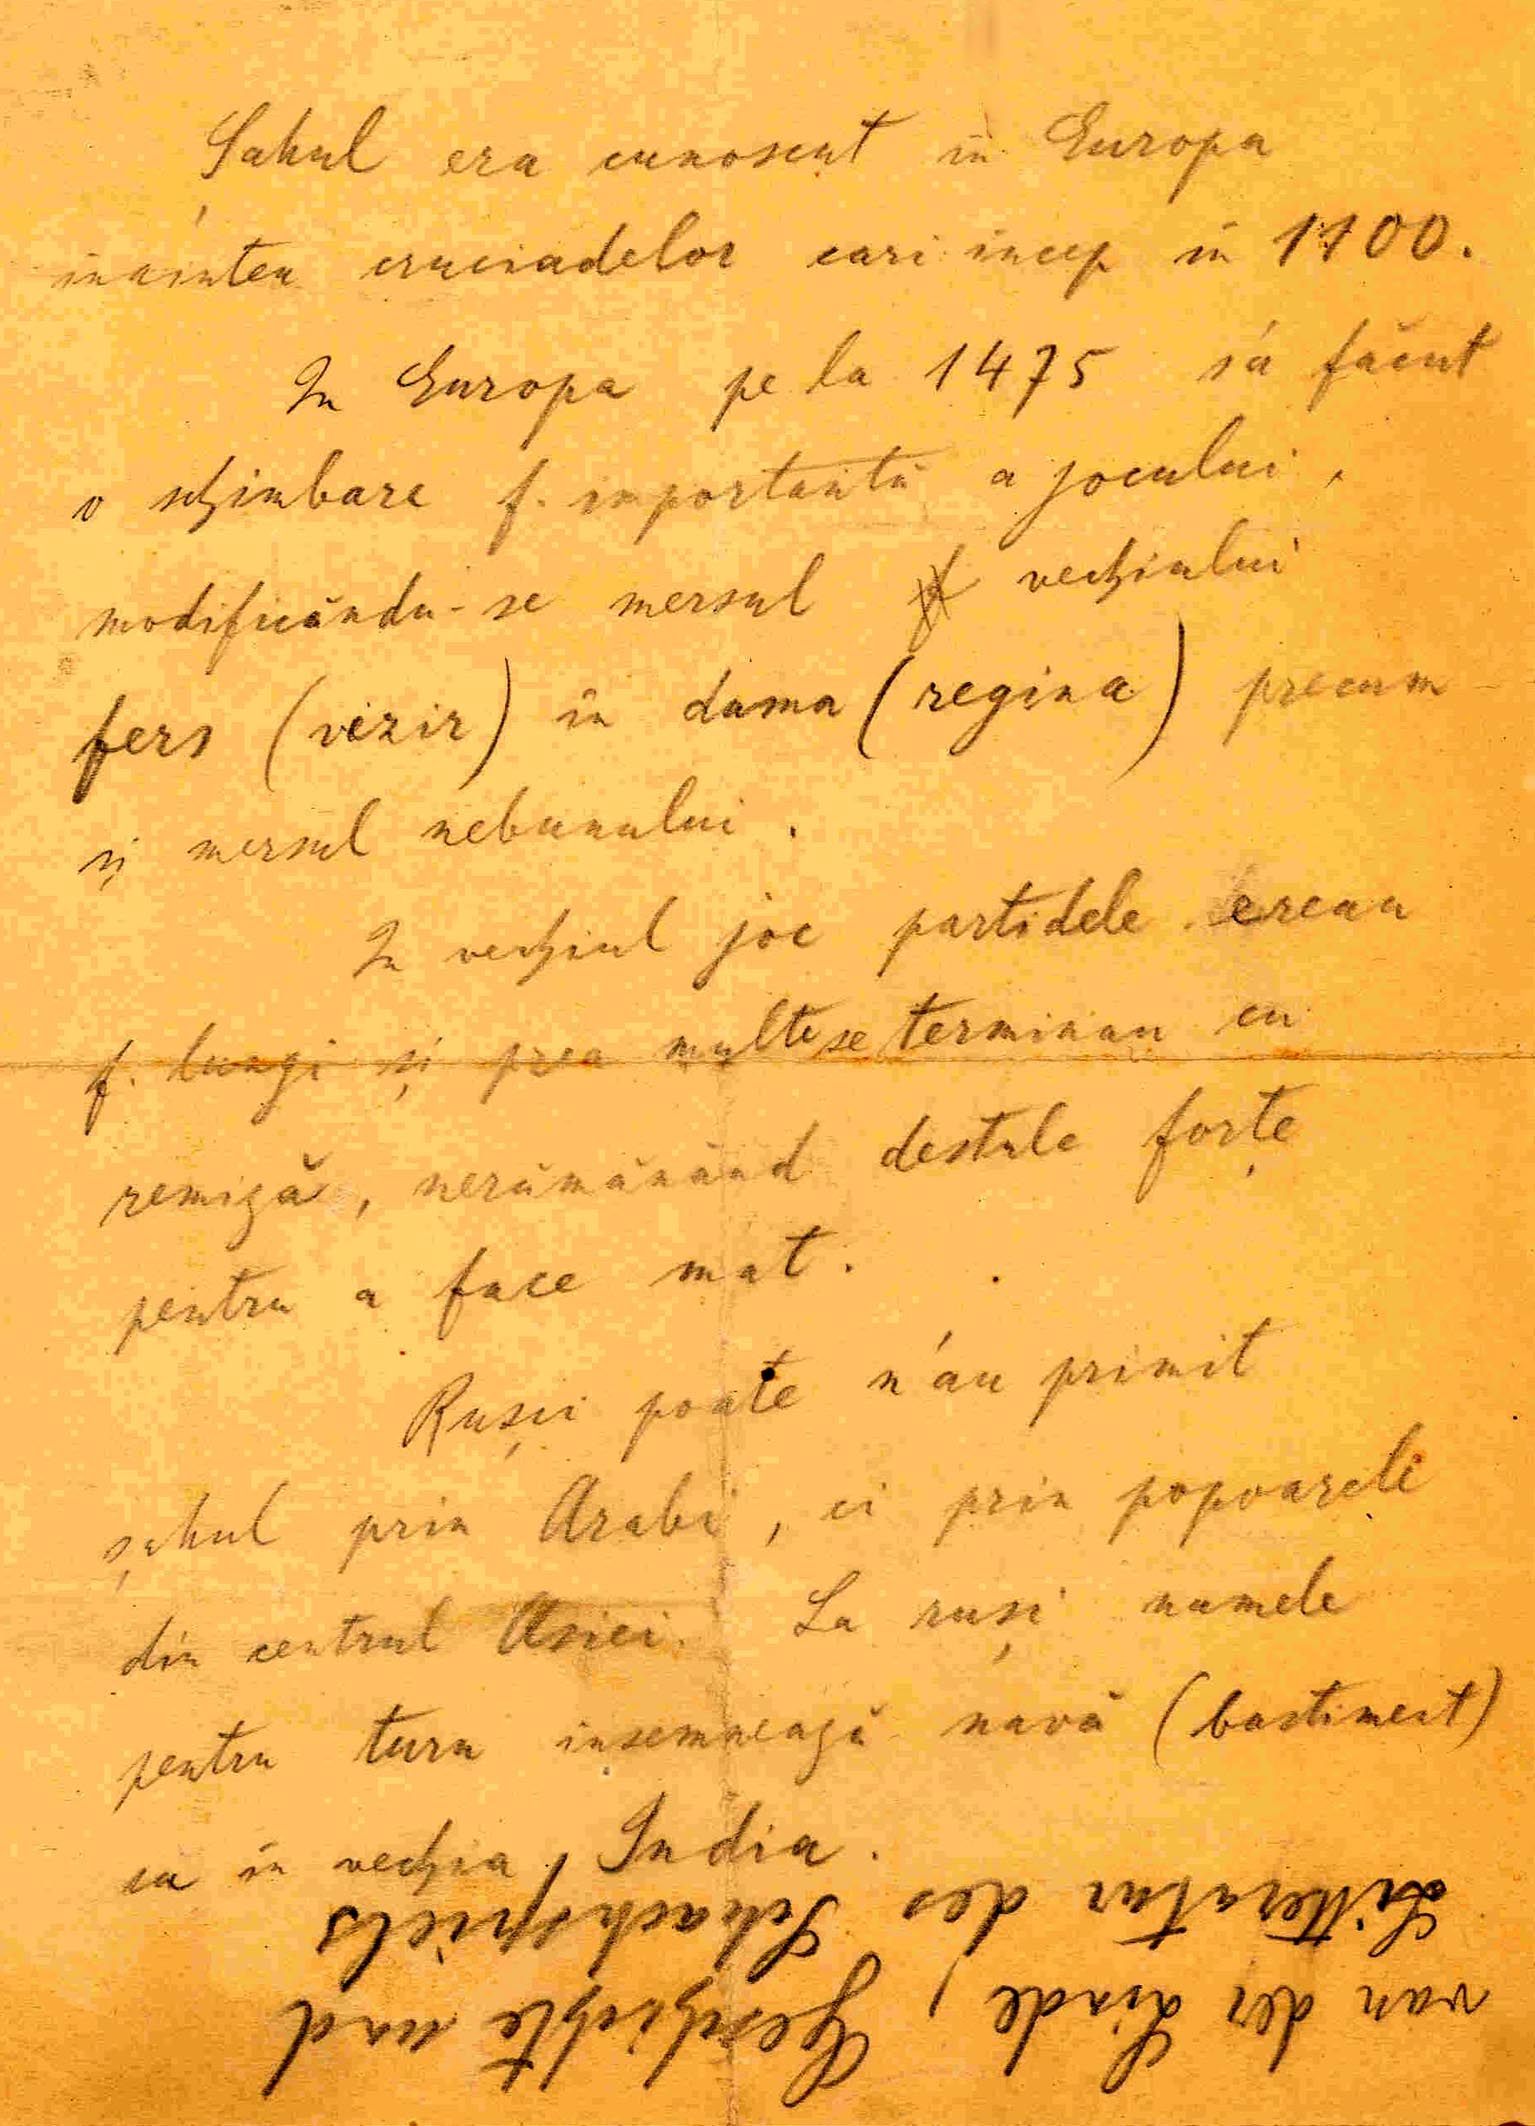 Șahul era cunoscut în Europa
inaintea cruciadelor cari incep in 1100.
In Europa pe la 1475 s'a făcut
o schimbare f. importantă a jocului,
modificându-se mersul vechiului
fers (vizir) în dama (regina) precum
și mersul nebunului.
In vechiul joc partidele ereau
f. lungi și prea multe se terminau cu
remiză, nerămânând destule forțe
pentru a face mat.
Rușii poate n'au primit
șahul prin Arabi, ci prin popoarele
din centrul Asiei. La ruși numele
pentru turn insemnează navă (bastiment)
ca în vechia India.
van der Linde, Geschichte und
Litteratur des Schachspiels